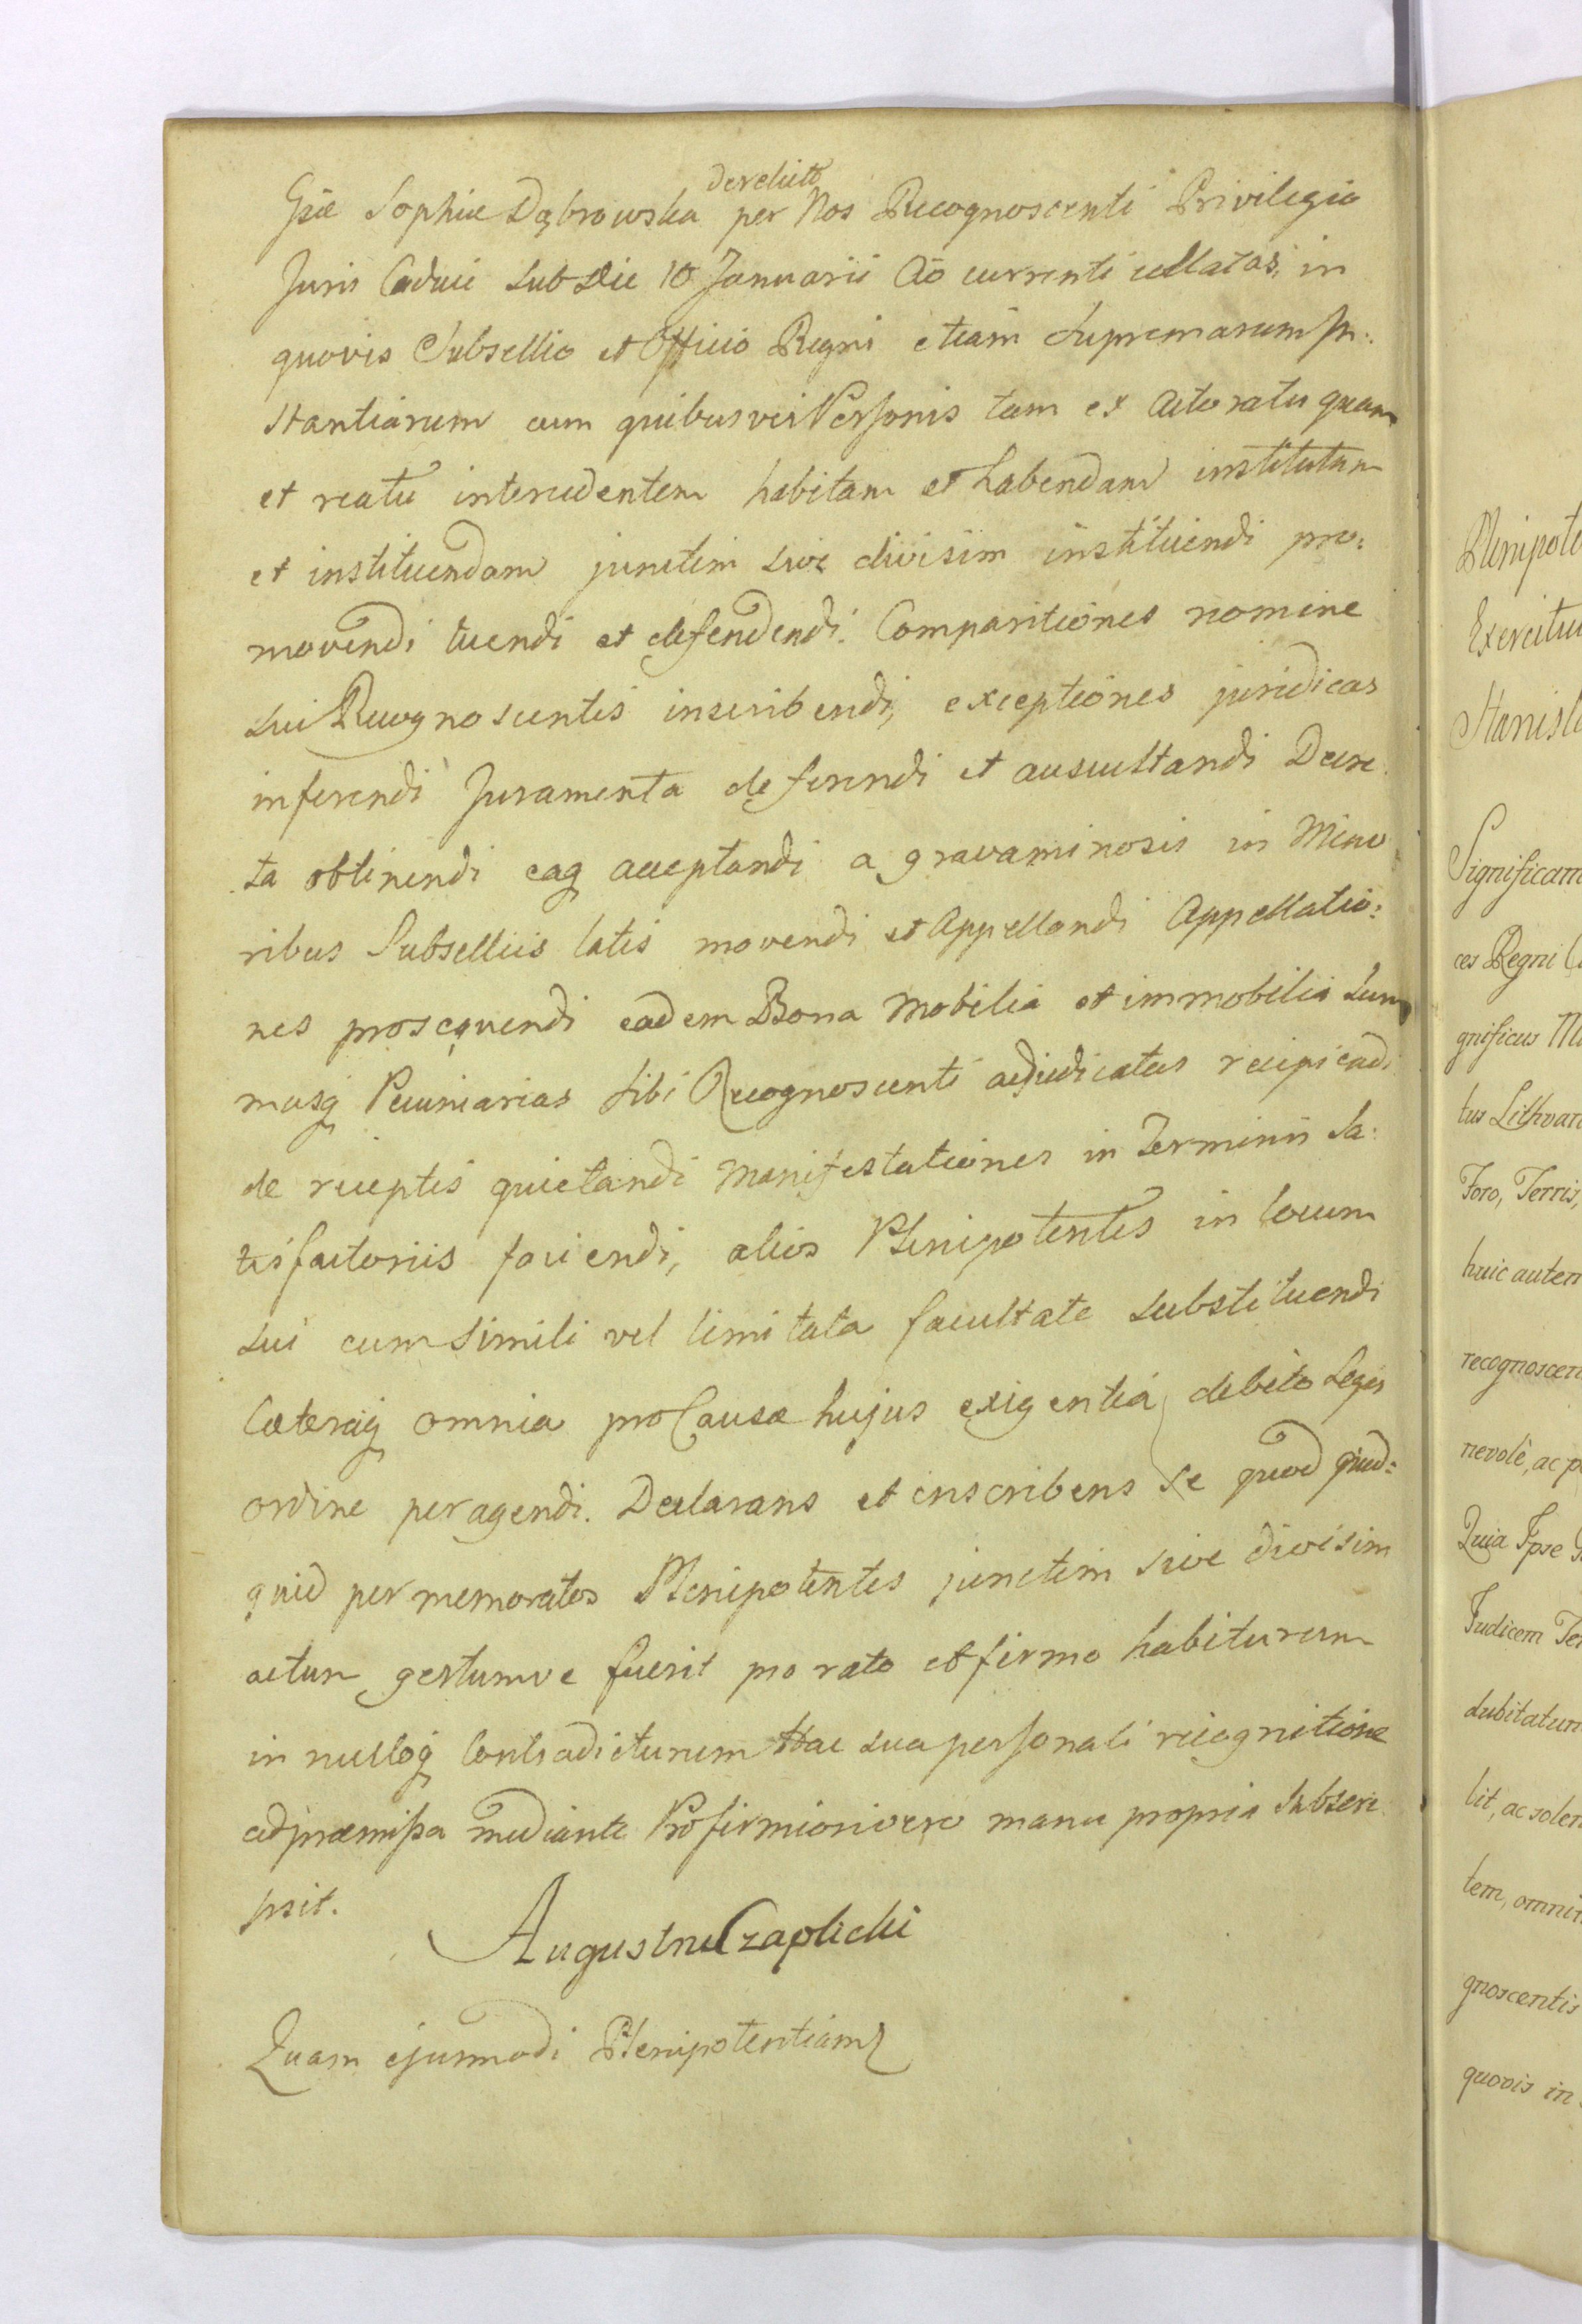 derelicto
Gsæ Sophiæ Dąbrowska per Nos Recognoscenti Privilegio
Juris Caduci sub Die 10 Januarii Ao currenti collatas, in
quovis Subsellio et Officio Regni etiam Supremarum In:
stantiarum cum quibusvis Personis tam ex Actoratu quam
et reatu intercedentem habitam et habendam institutam
et instituendam junctim sive divisim instituendi pro:
movendi tuendi et defendendi. Comparitiones nomine
sui Recognoscentis inscribendi, exceptiones juridicas
inferendi Juramenta deferendi et auscultandi Decre
ta obtinendi eaq acceptandi a gravaminosis in Mino
ribus Subselliis latis movendi et Appellandi Appellatio:
nes prosequendi eadem Bona Mobilia et immobilia Sum
masq Pecuniarias sibi Recognoscenti adjudicatas recipiendi
de receptis quietandi Manifestationes in Terminis Sa:
tisfactoriis faciendi, alios Plenipotentes in locum
sui cum simili vel limitata facultate substituendi
Cæteraq omnia pro Causæ hujus exigentia debito Legis
ordine peragendi. Declarans et inscribens se quod quid:
quid per memoratos Plenipotentes junctim sive divisim
actum gestumve fuerit pro rato et firmo habiturum
in nulloq Contradicturum Hac sua personali recognitione
ad præmissa mediante Pro firmiori vero manu propria Subscri
psit.
Augustus Czaplicki
Quam ejusmodi Plenipotentiam
Plenipote
Exercitu
Stanisl
Significam
ces Regni C
gnificus M
tus Lithvan
Foro, Terris,
huic autem
recognoscen
nevolè, ac p
Quia Ipse
Judicem Ter
dubitatum
lit, ac solen
tem, omni
gnoscentis
quovis in